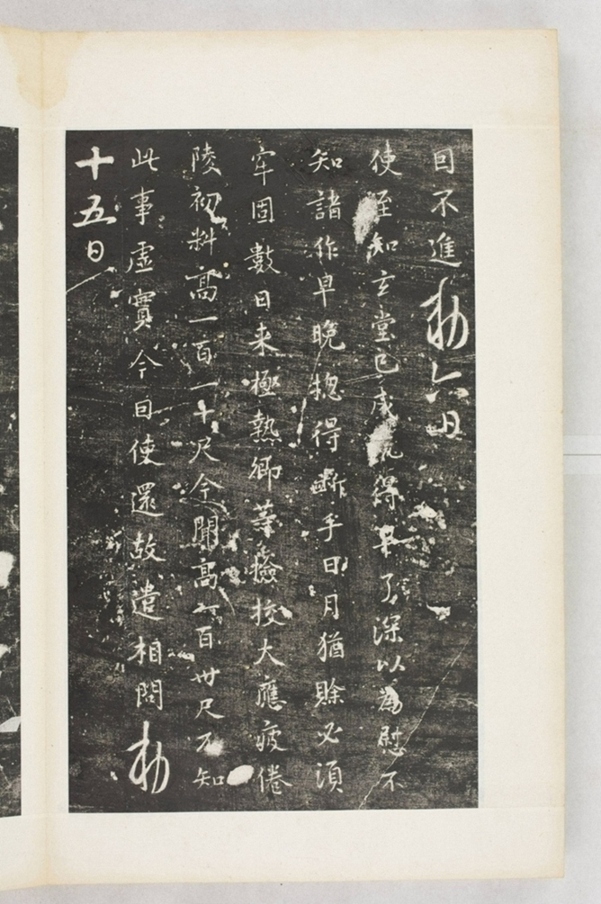 日不進勅六日
使至知玄堂已成既得早了深以為慰不
知諸作早晚揔得斷手日月猶賒必須
牢固數日来極熱卿等撿挍大應疲倦
陵初料高一百一十尺今聞高一百卅尺不知
此事虛實今日使還故遣相問勅
十五日